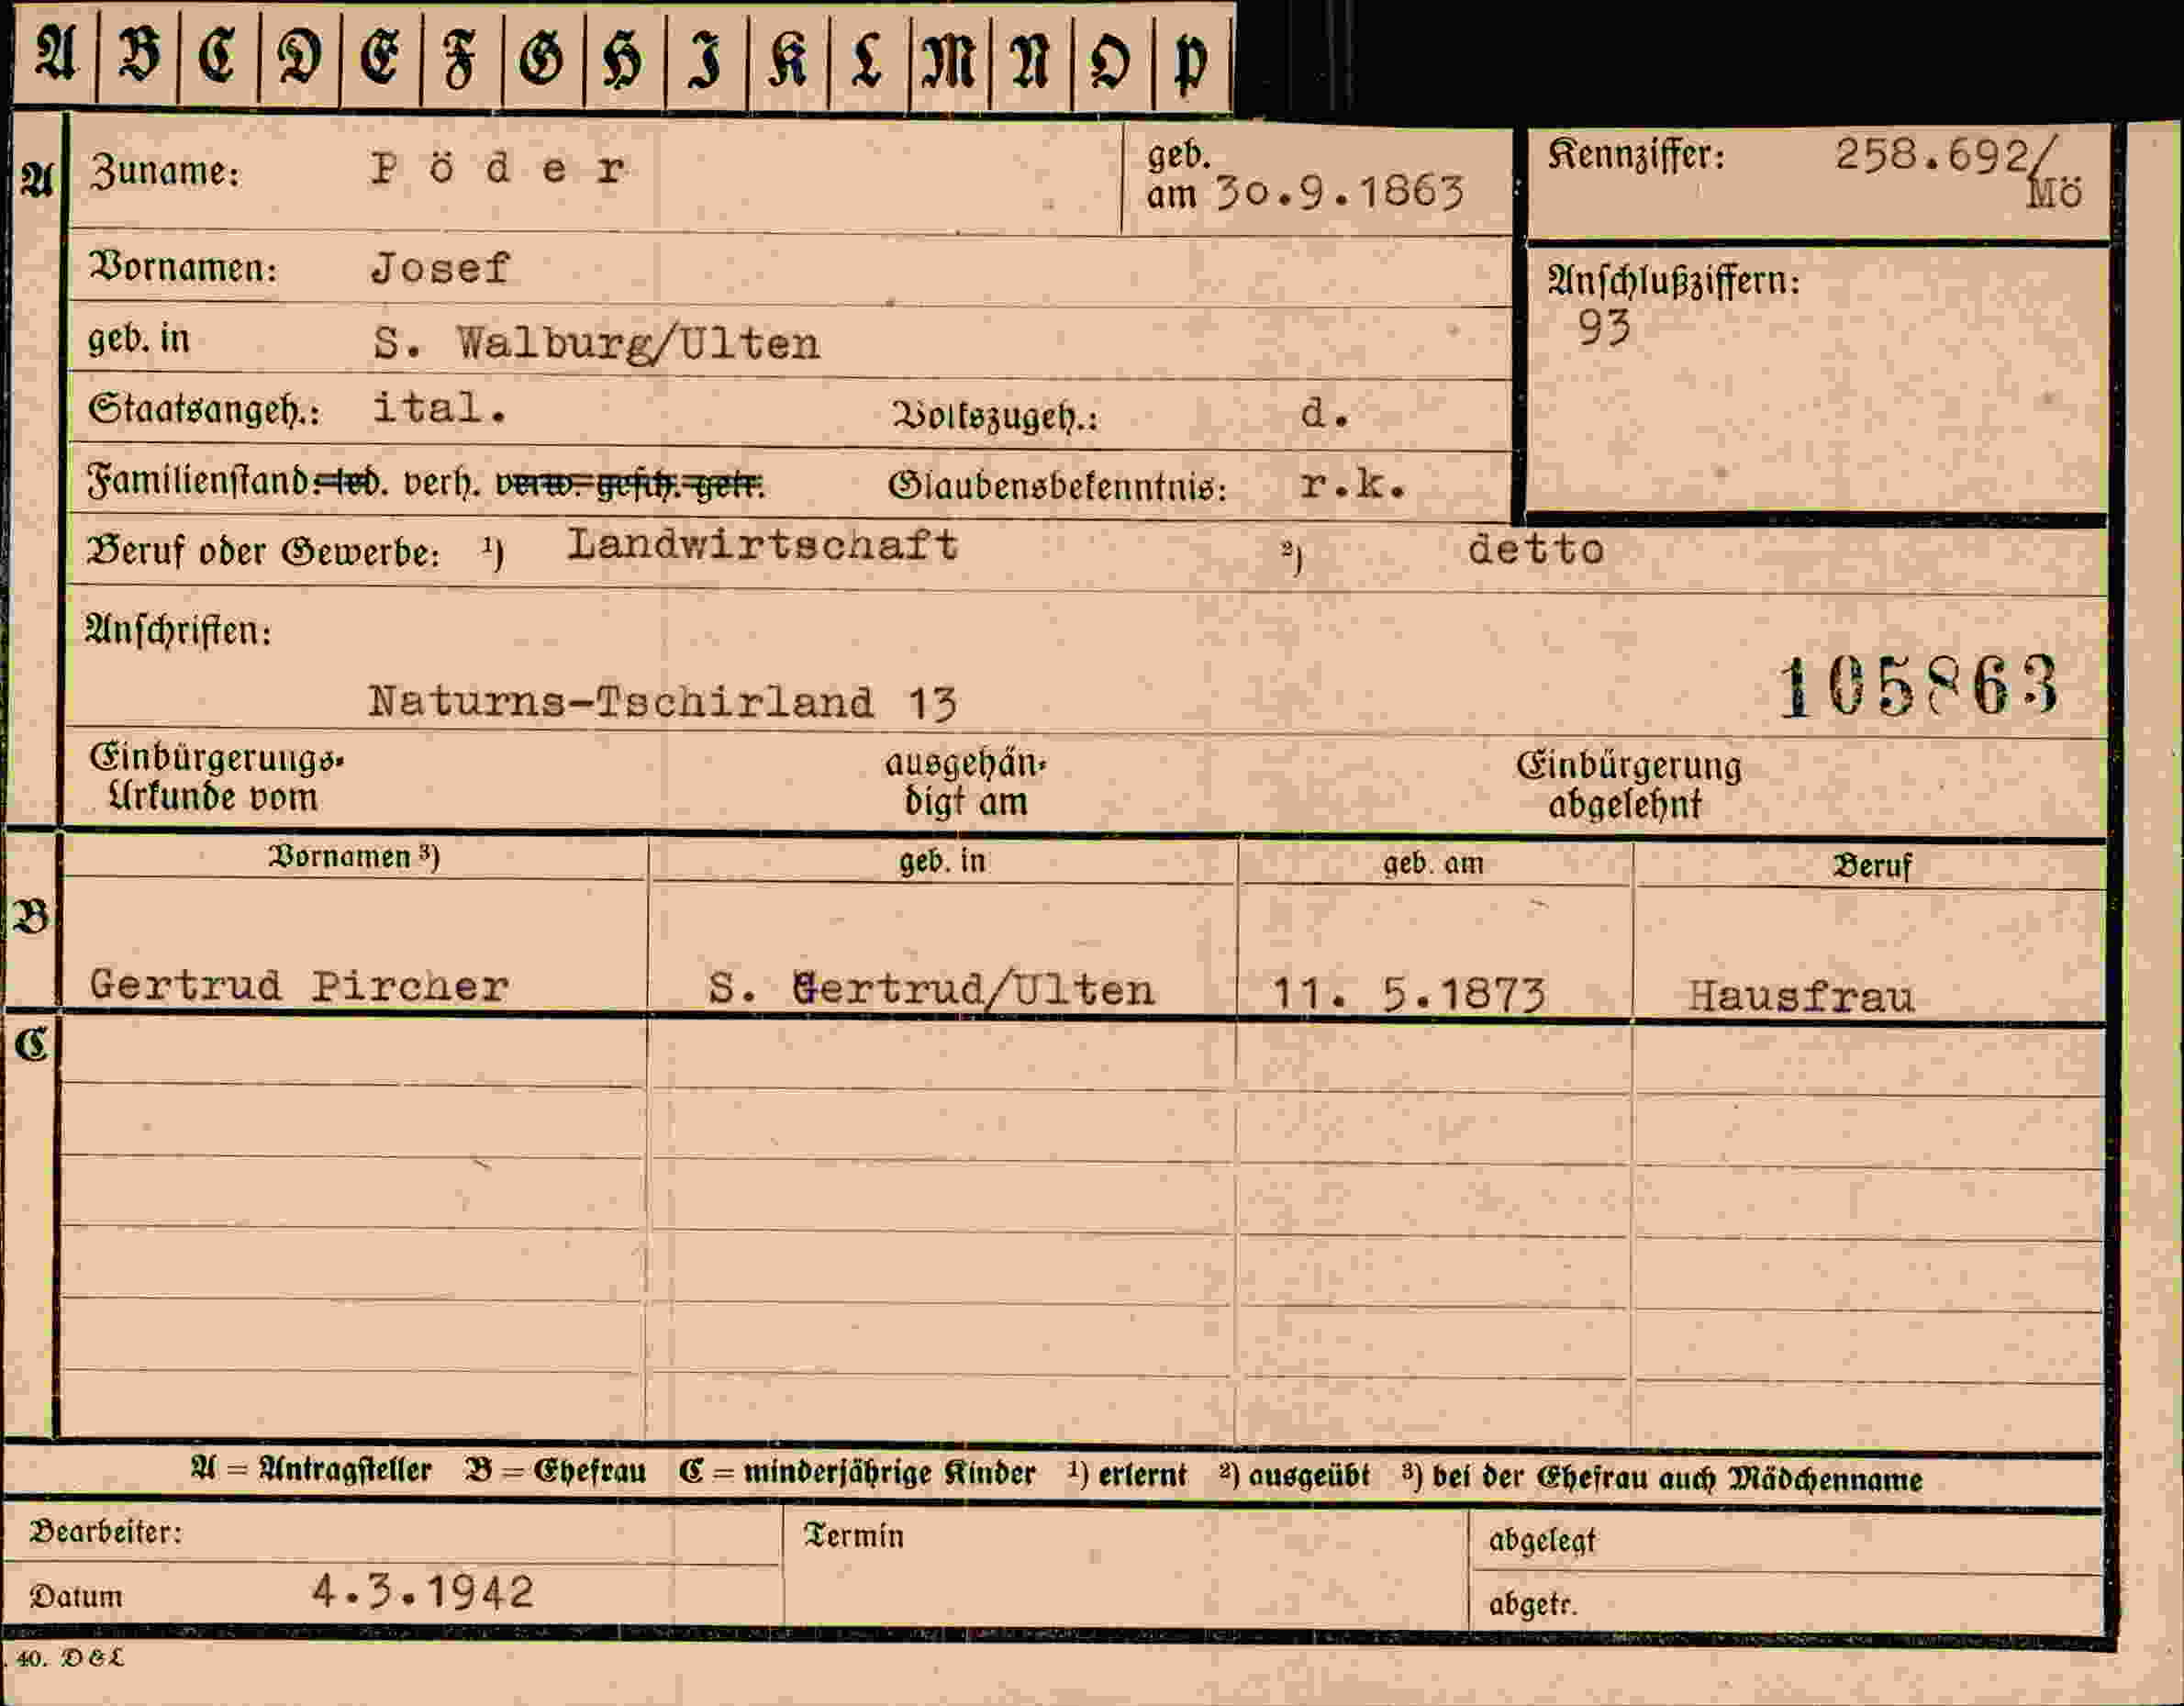 A B C D E F G H I K L M N O P
A Zuname: Pöder geb. am 30.9.1863 Kennziffer: 258.692/Mö
Vornamen: Josef Anschlußziffern:
93
geb. in S. Walburg/Ulten
Staatsangeh.: ital. Volkszugeh.: d.
Familienstand: led. verh. verw. gesch. getr. Glaubensbekenntnis: r.k.
Beruf oder Gewerbe: ¹) Landwirtschaft ²) detto
Anschriften:
Naturns-Tschirland 13 105863
Einbürgerungs-Urkunde vom ausgehändigt am Einbürgerung abgelehnt
Vornamen ³) geb. in geb. am Beruf
B
Gertrud Pircher S. Gertrud/Ulten 11. 5.1873 Hausfrau
C
A = Antragsteller B = Ehefrau C = minderjährige Kinder ¹) erlernt ²) ausgeübt ³) bei der Ehefrau auch Mädchenname
Bearbeiter: Termin abgelegt
Datum 4.3.1942 abgetr.
40. D&L